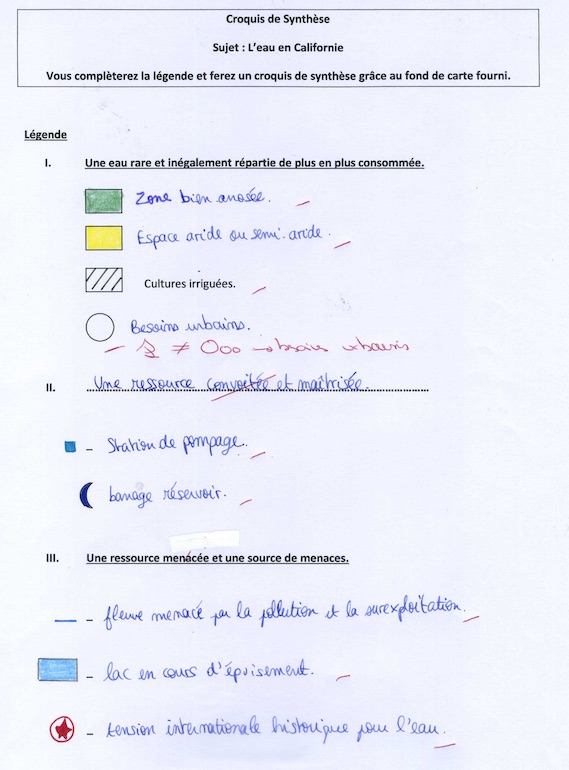 Croquis de Synthèse
Sujet : L'eau en Californie
Vous complèterez la légende et ferez un croquis de synthèse grâce au fond de carte fourni.
Légende
I. Une eau rare et inégalement répartie de plus en plus consommée.
Zone bien arrosée.
Espace aride ou semi-aride.
Cultures irriguées.
Besoins urbains.
≠ → besoins urbains
II. Une ressource convoitée et maîtrisée.
- Station de pompage.
barrage réservoir.
III. Une ressource menacée et une source de menaces.
- fleuve menacé par la pollution et la surexploitation.
- lac en cours d'épuisement.
- tension internationale historique pour l'eau.